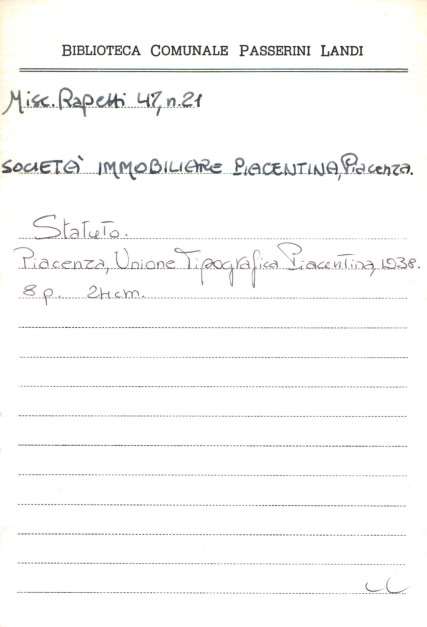 BIBLIOTECA COMUNALE PASSERINI LANDI
Misc. Rapetti 47, n. 21
SOCIETÀ IMMOBILIARE PIACENTINA, Piacenza.
Statuto.
Piacenza, Unione Tipografica Piacentina, 1938.
8 p. 24 cm.